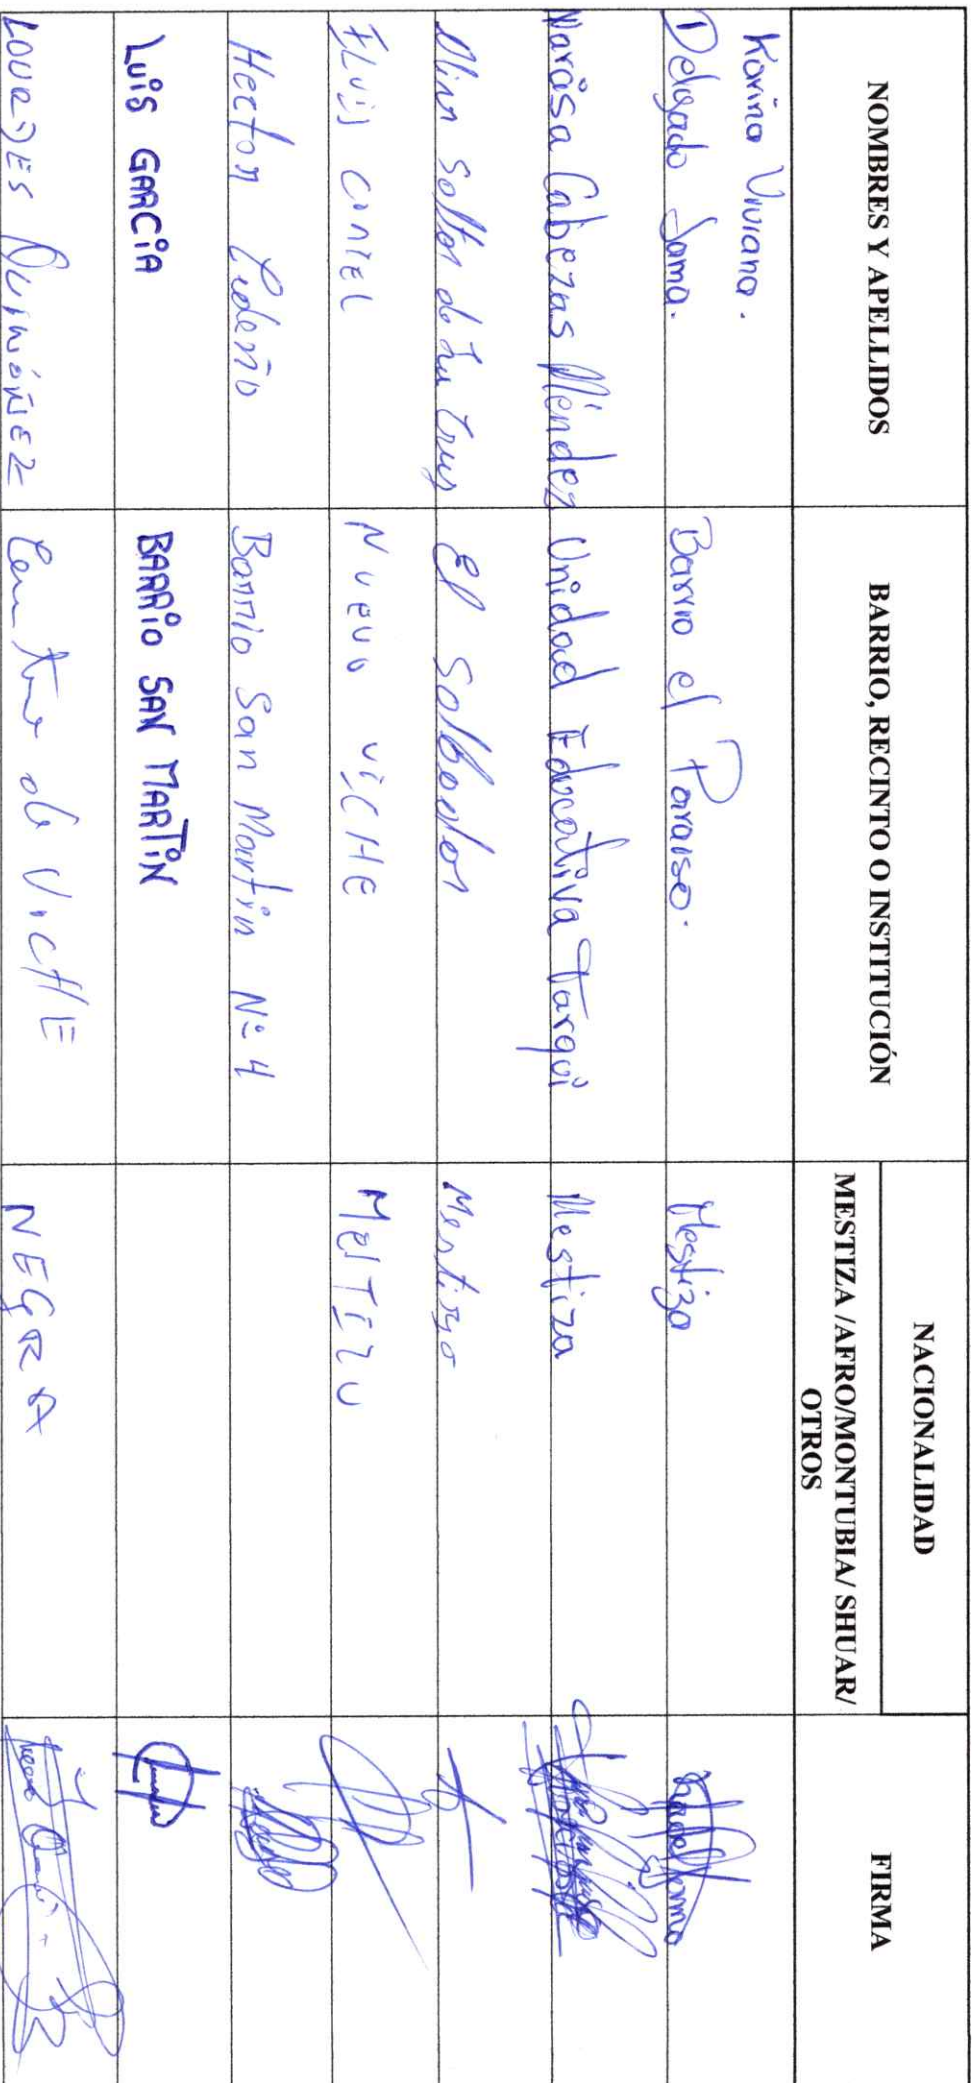 NOMBRES Y APELLIDOS
BARRIO, RECINTO O INSTITUCIÓN
NACIONALIDAD
MESTIZA /AFRO/MONTUBIA/ SHUAR/
OTROS
FIRMA
Karina Viviana.
Delgado Jama.
Barrio el Paraiso.
Mestiza
Narcisa Cabezas Méndez
Unidad Educativa Tarqui
Mestiza
Soltos de La Cruz
El Salbador
Mestizo
NUEVO VICHE
Hector Cedeño
Barrio San Martin Nº 4
LUIS GARCIA
BARRIO SAN MARTIN
LOURDES QUIÑÓNEZ
Centro de VICHE
NEGRA